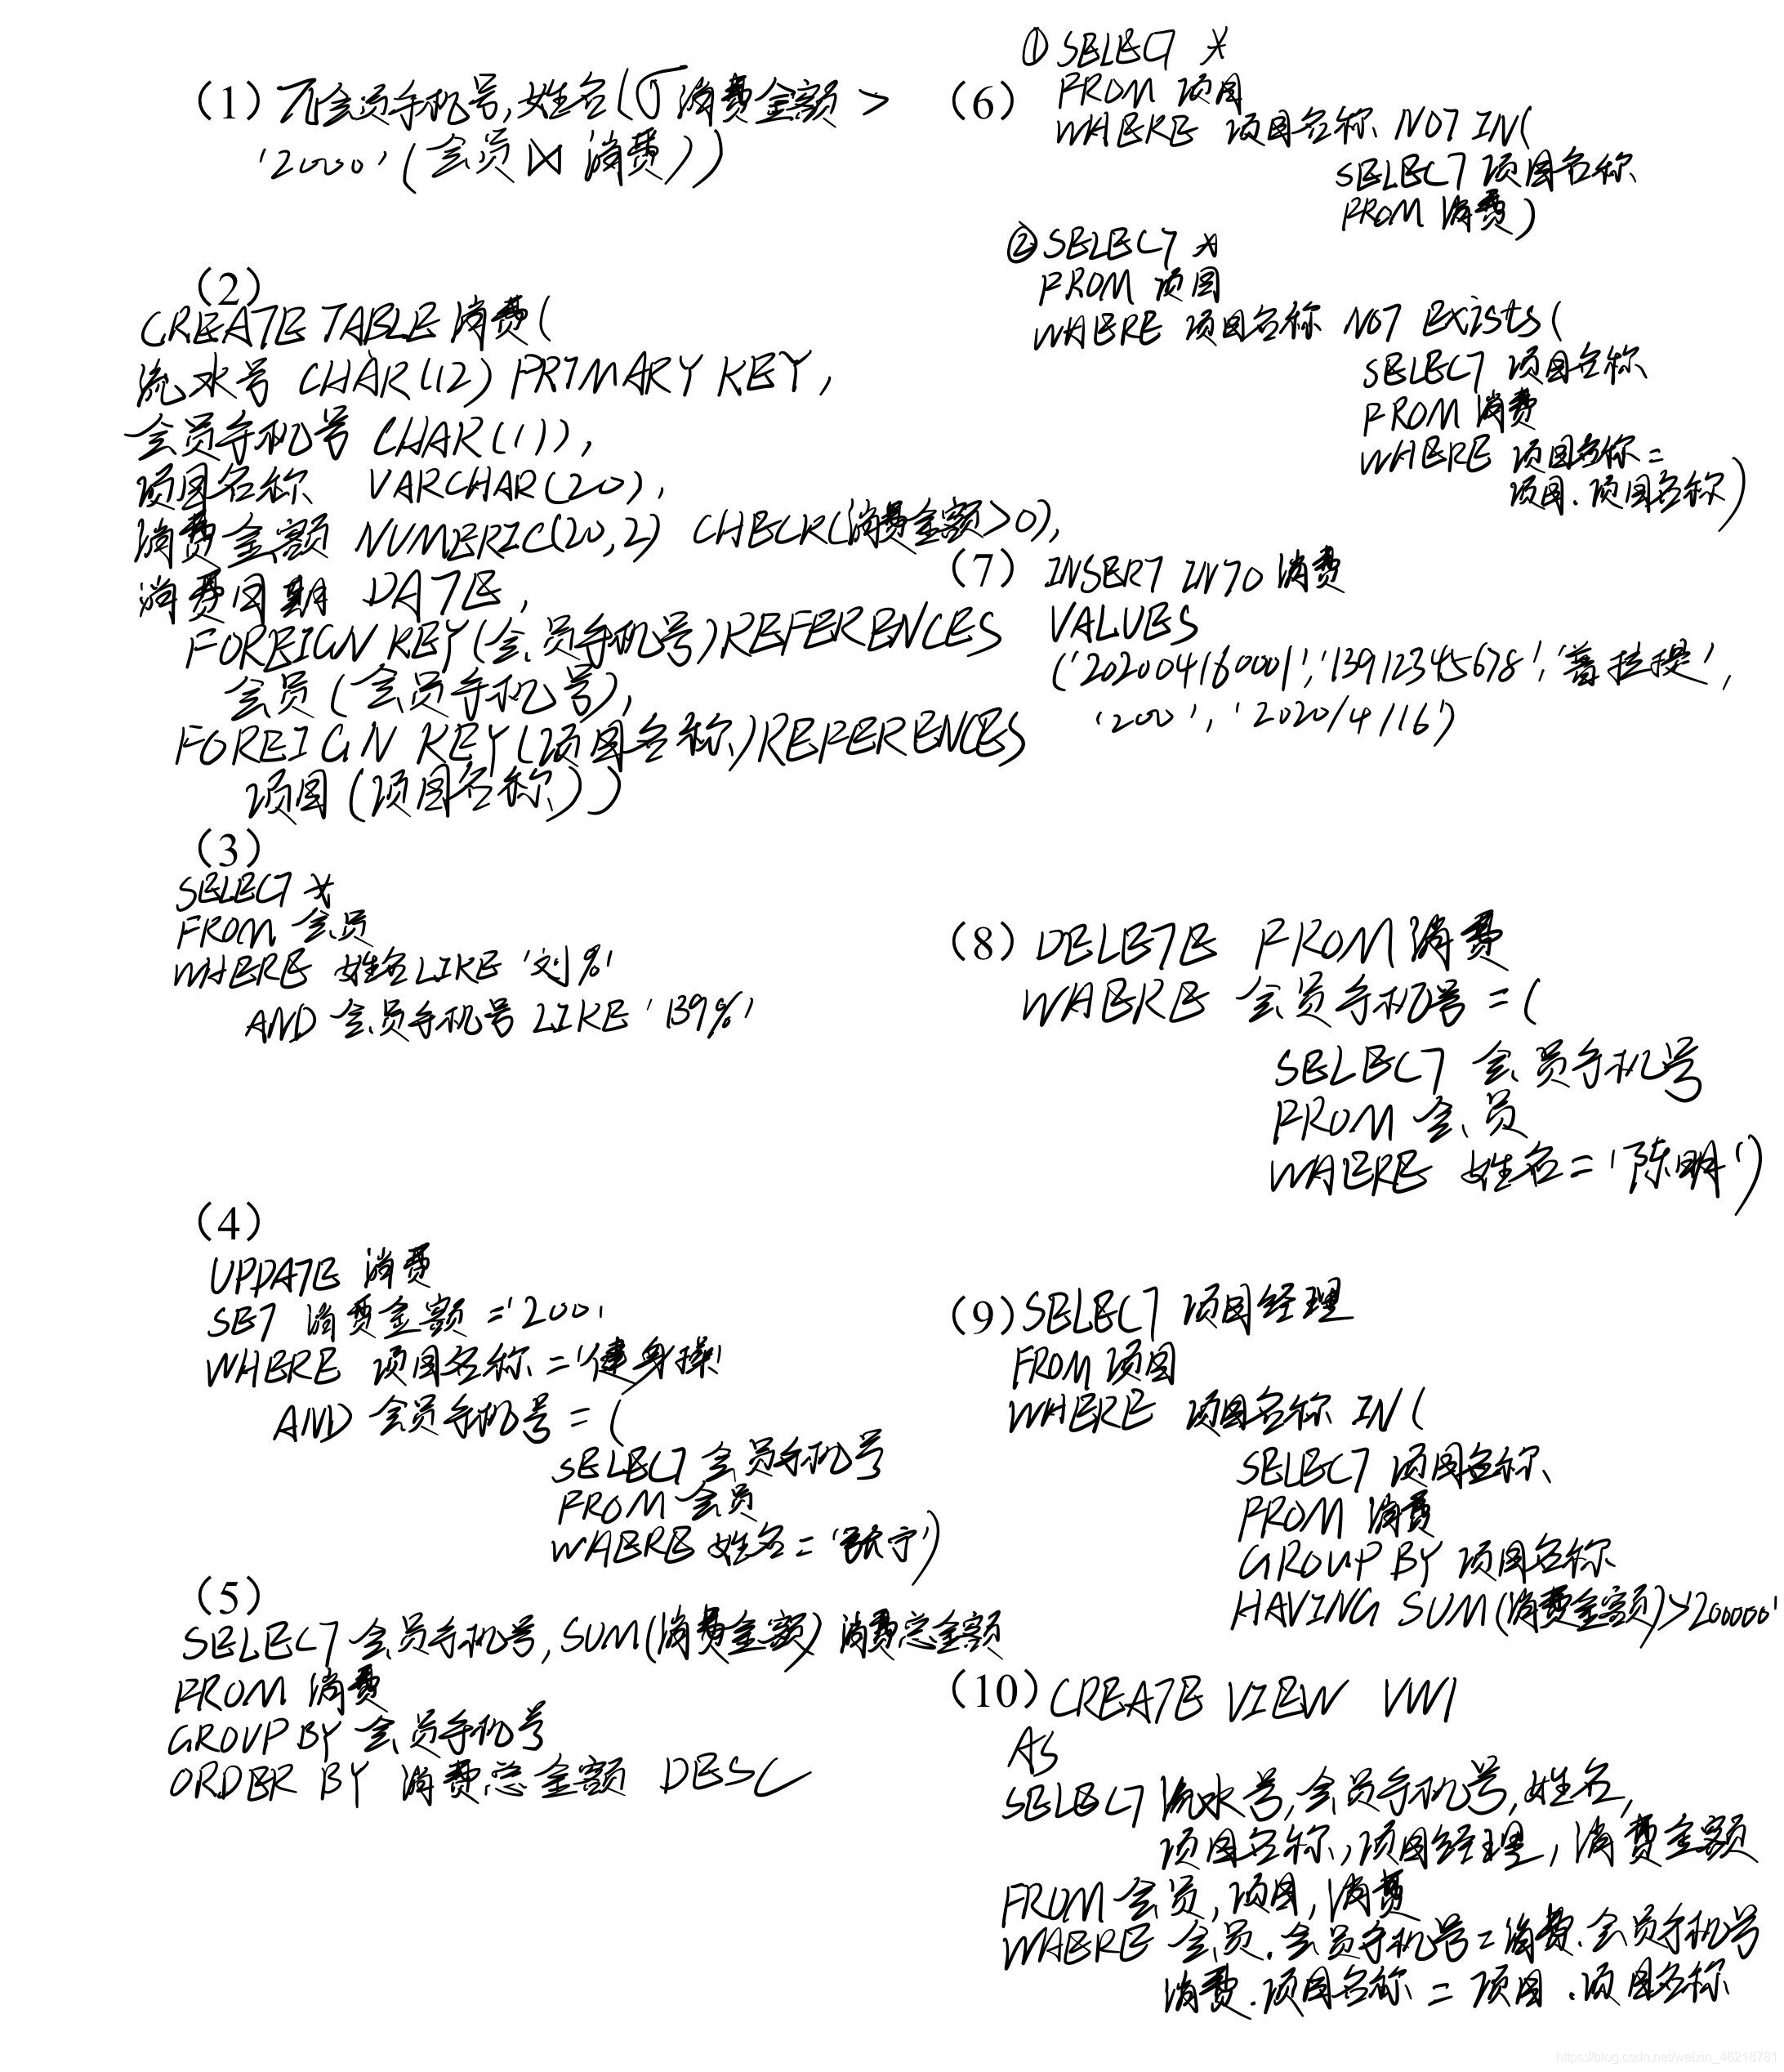 (1) π会员手机号,姓名(σ消费金额>
'2000'(会员⋈消费))
(2)
CREATE TABLE 消费(
流水号 CHAR(12) PRIMARY KEY,
会员手机号 CHAR(11),
项目名称 VARCHAR(20),
消费金额 NUMERIC(20,2) CHECK(消费金额>0),
消费日期 DATE,
FOREIGN KEY(会员手机号)REFERENCES
会员(会员手机号),
FOREIGN KEY(项目名称)REFERENCES
项目(项目名称))
(3)
SELECT *
FROM 会员
WHERE 姓名 LIKE '刘%'
AND 会员手机号 LIKE '139%'
(4)
UPDATE 消费
SET 消费金额='200'
WHERE 项目名称='健身操'
AND 会员手机号=(
SELECT 会员手机号
FROM 会员
WHERE 姓名='张宁')
(5)
SELECT 会员手机号,SUM(消费金额) 消费总金额
FROM 消费
GROUP BY 会员手机号
ORDER BY 消费总金额 DESC
(6) ① SELECT *
FROM 项目
WHERE 项目名称 NOT IN(
SELECT 项目名称
FROM 消费)
② SELECT *
FROM 项目
WHERE 项目名称 NOT Exists(
SELECT 项目名称
FROM 消费
WHERE 项目名称=
项目.项目名称)
(7) INSERT INTO 消费
VALUES
('202004160001','13912345678','普拉提',
'200','2020/4/16')
(8) DELETE FROM 消费
WHERE 会员手机号=(
SELECT 会员手机号
FROM 会员
WHERE 姓名='陈明')
(9) SELECT 项目经理
FROM 项目
WHERE 项目名称 IN(
SELECT 项目名称
FROM 消费
GROUP BY 项目名称
HAVING SUM(消费金额)>'200000'
(10) CREATE VIEW VW1
AS
SELECT 流水号,会员手机号,姓名,
项目名称,项目经理,消费金额
FROM 会员,项目,消费
WHERE 会员.会员手机号=消费.会员手机号
消费.项目名称=项目.项目名称
https://blog.csdn.net/weixin_46218781